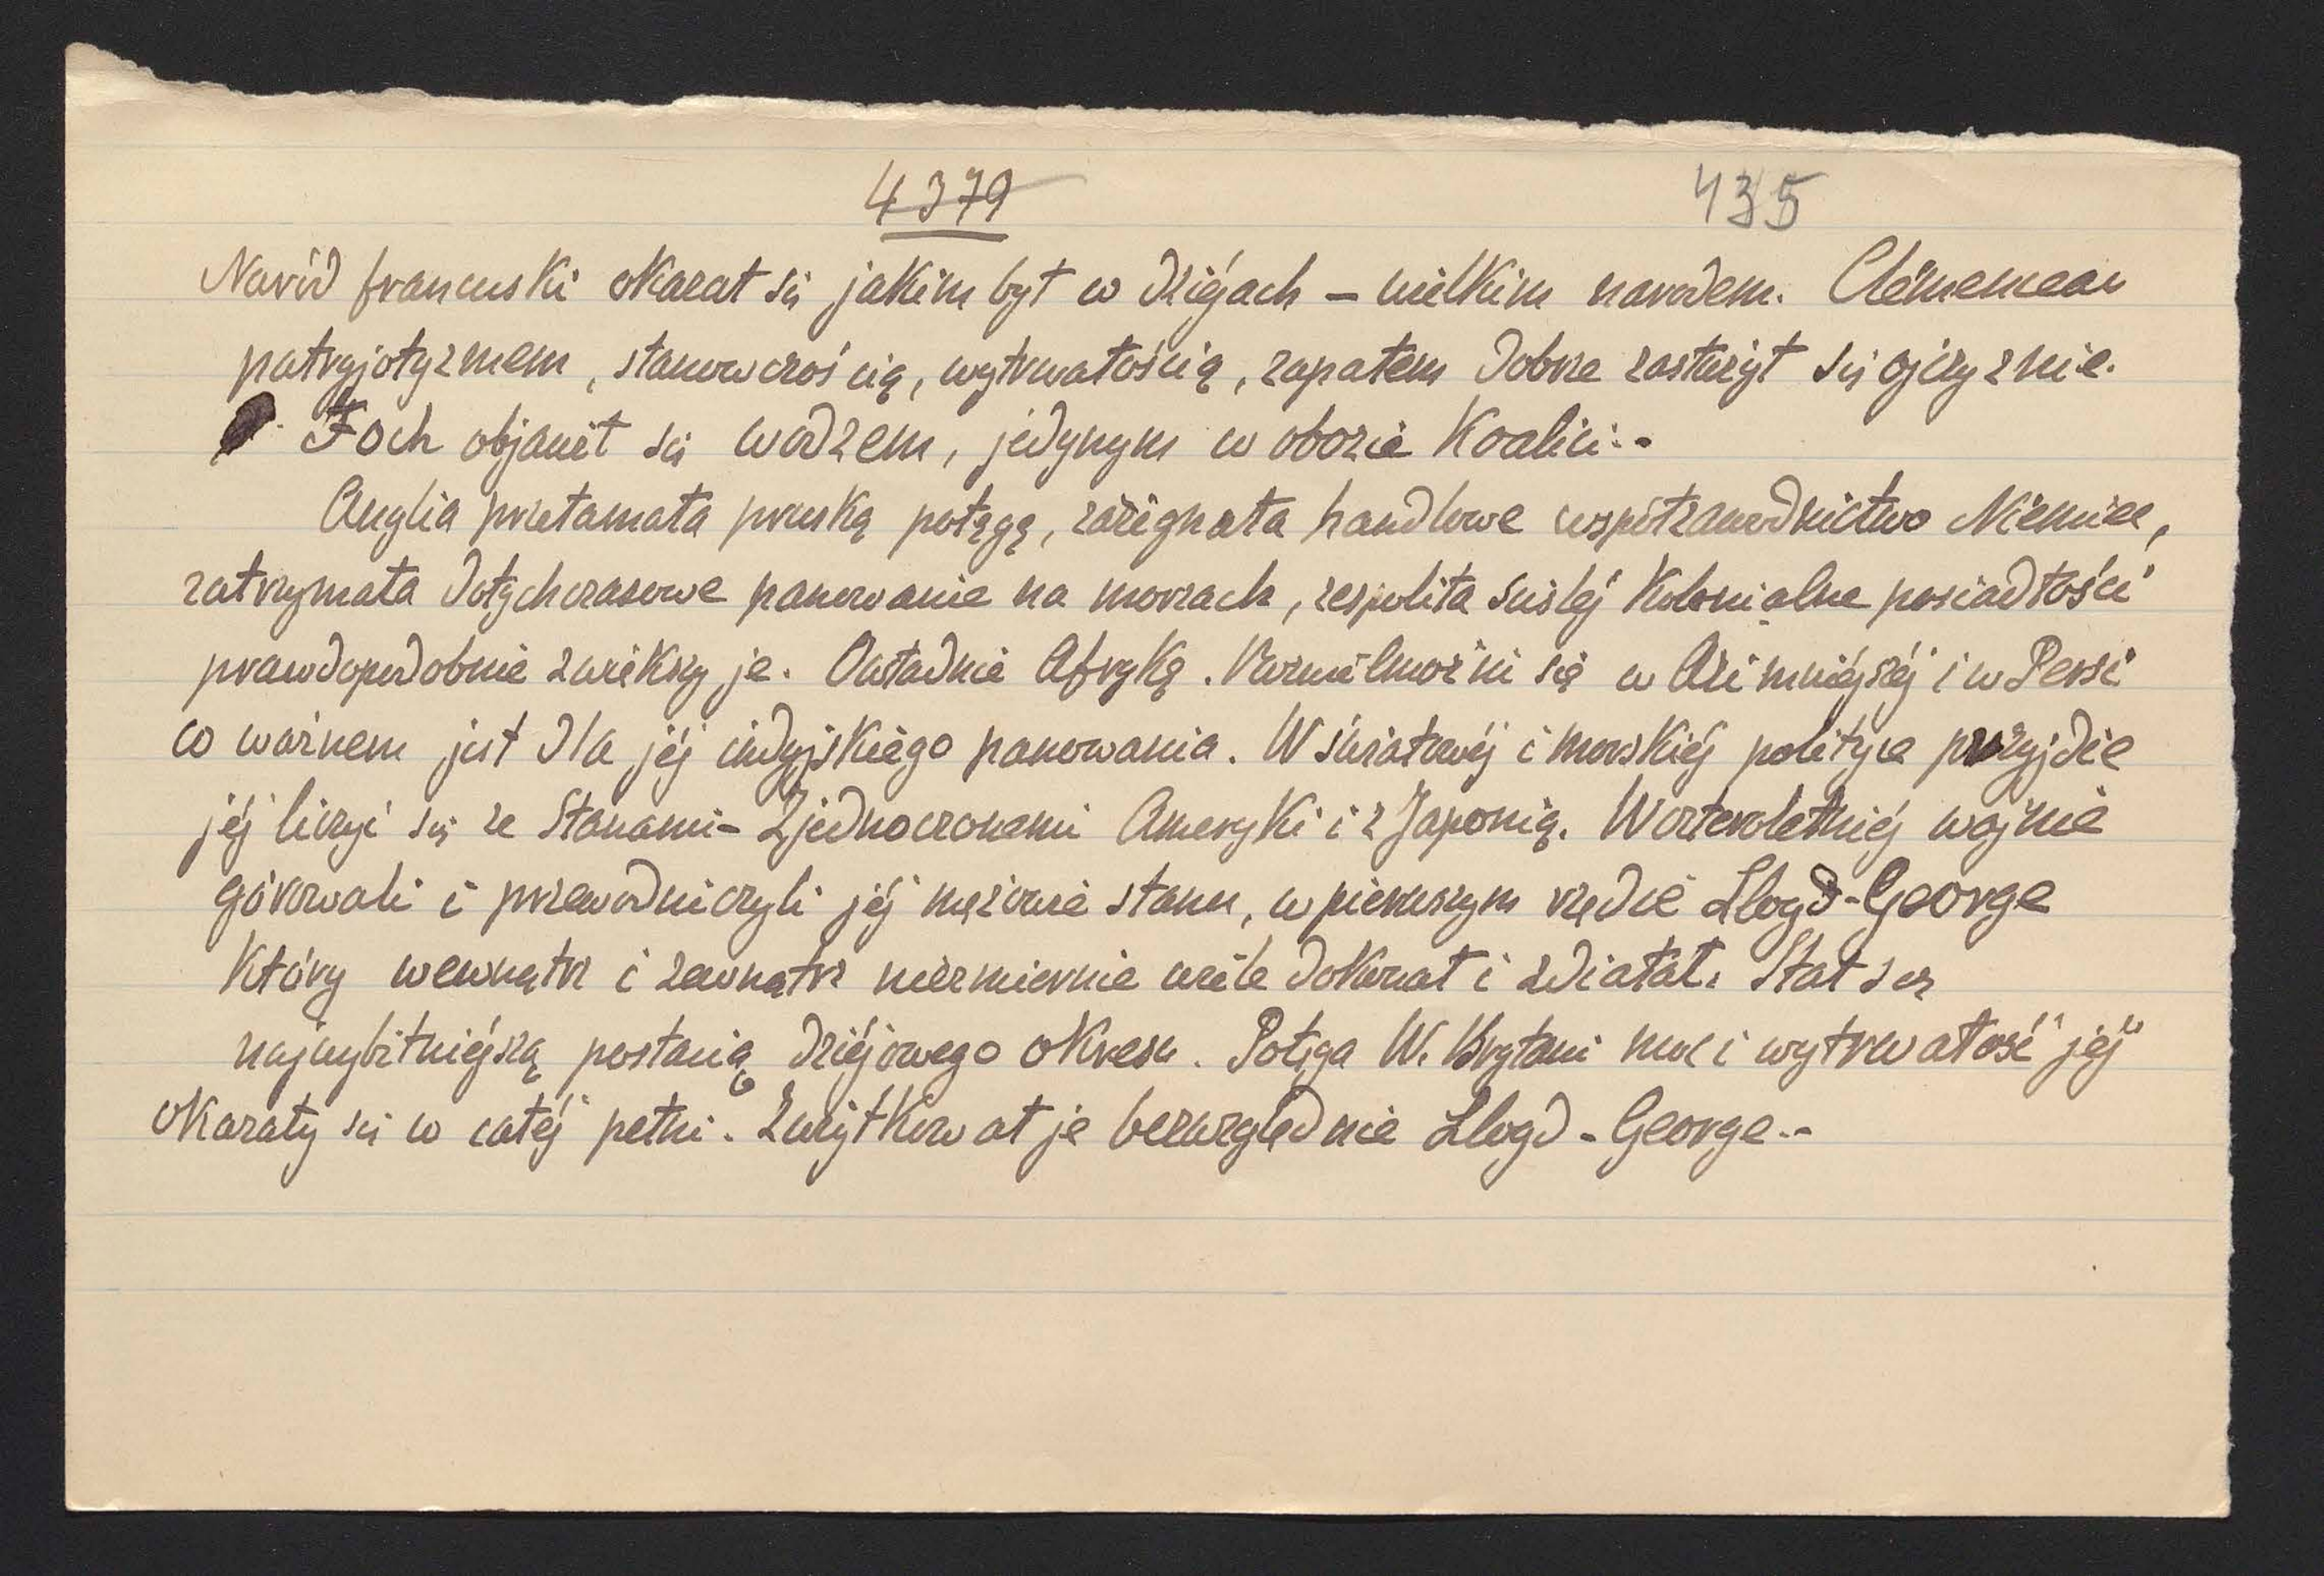 4379 435
Naród francuski okazał się jakim był w dziéjach – wielkim narodem. Clémenceau
patryjotyzmem, stanowczością, wytrwałością, zapałem dobrze zasłużył się ojczyznie.
Foch objawił się wodzem, jedynym w obozie Koalici.-
Anglia przełamała pruską potęgę, zażegnała handlowe współzawodnictwo Niemiec,
zatrzymała dotychczasowe panowanie na morzach, zespoliła ściśléj Kolonialne posiadłości
prawdopodobnie zwiékszy je. Owładnie Afryką. Rozwielmożni się w Azi mniéjszéj i w Persi
co ważnem jest dla jéj indyjskiego panowania. W światowéj i morskiéj polityce przyjdzie
jéj liczyć się ze Stanami-Zjednoczonemi Ameryki i z Japonią. W czteroletniéj wojnie
górowali i przewodniczyli jéj mężowie stanu, w pierwszym rzędzie Lloyd-George
Który wewnątrz i zewnątrz niezmiernie wiele dokonał i zdziałał. Stał się
najwybitniéjszą postacią dziéjowego okresu. Potęga W. Brytani moc i wytrwałość jéj
okazały się w całéj pełni. Zużytkował je bezwzględnie Lloyd-George.-